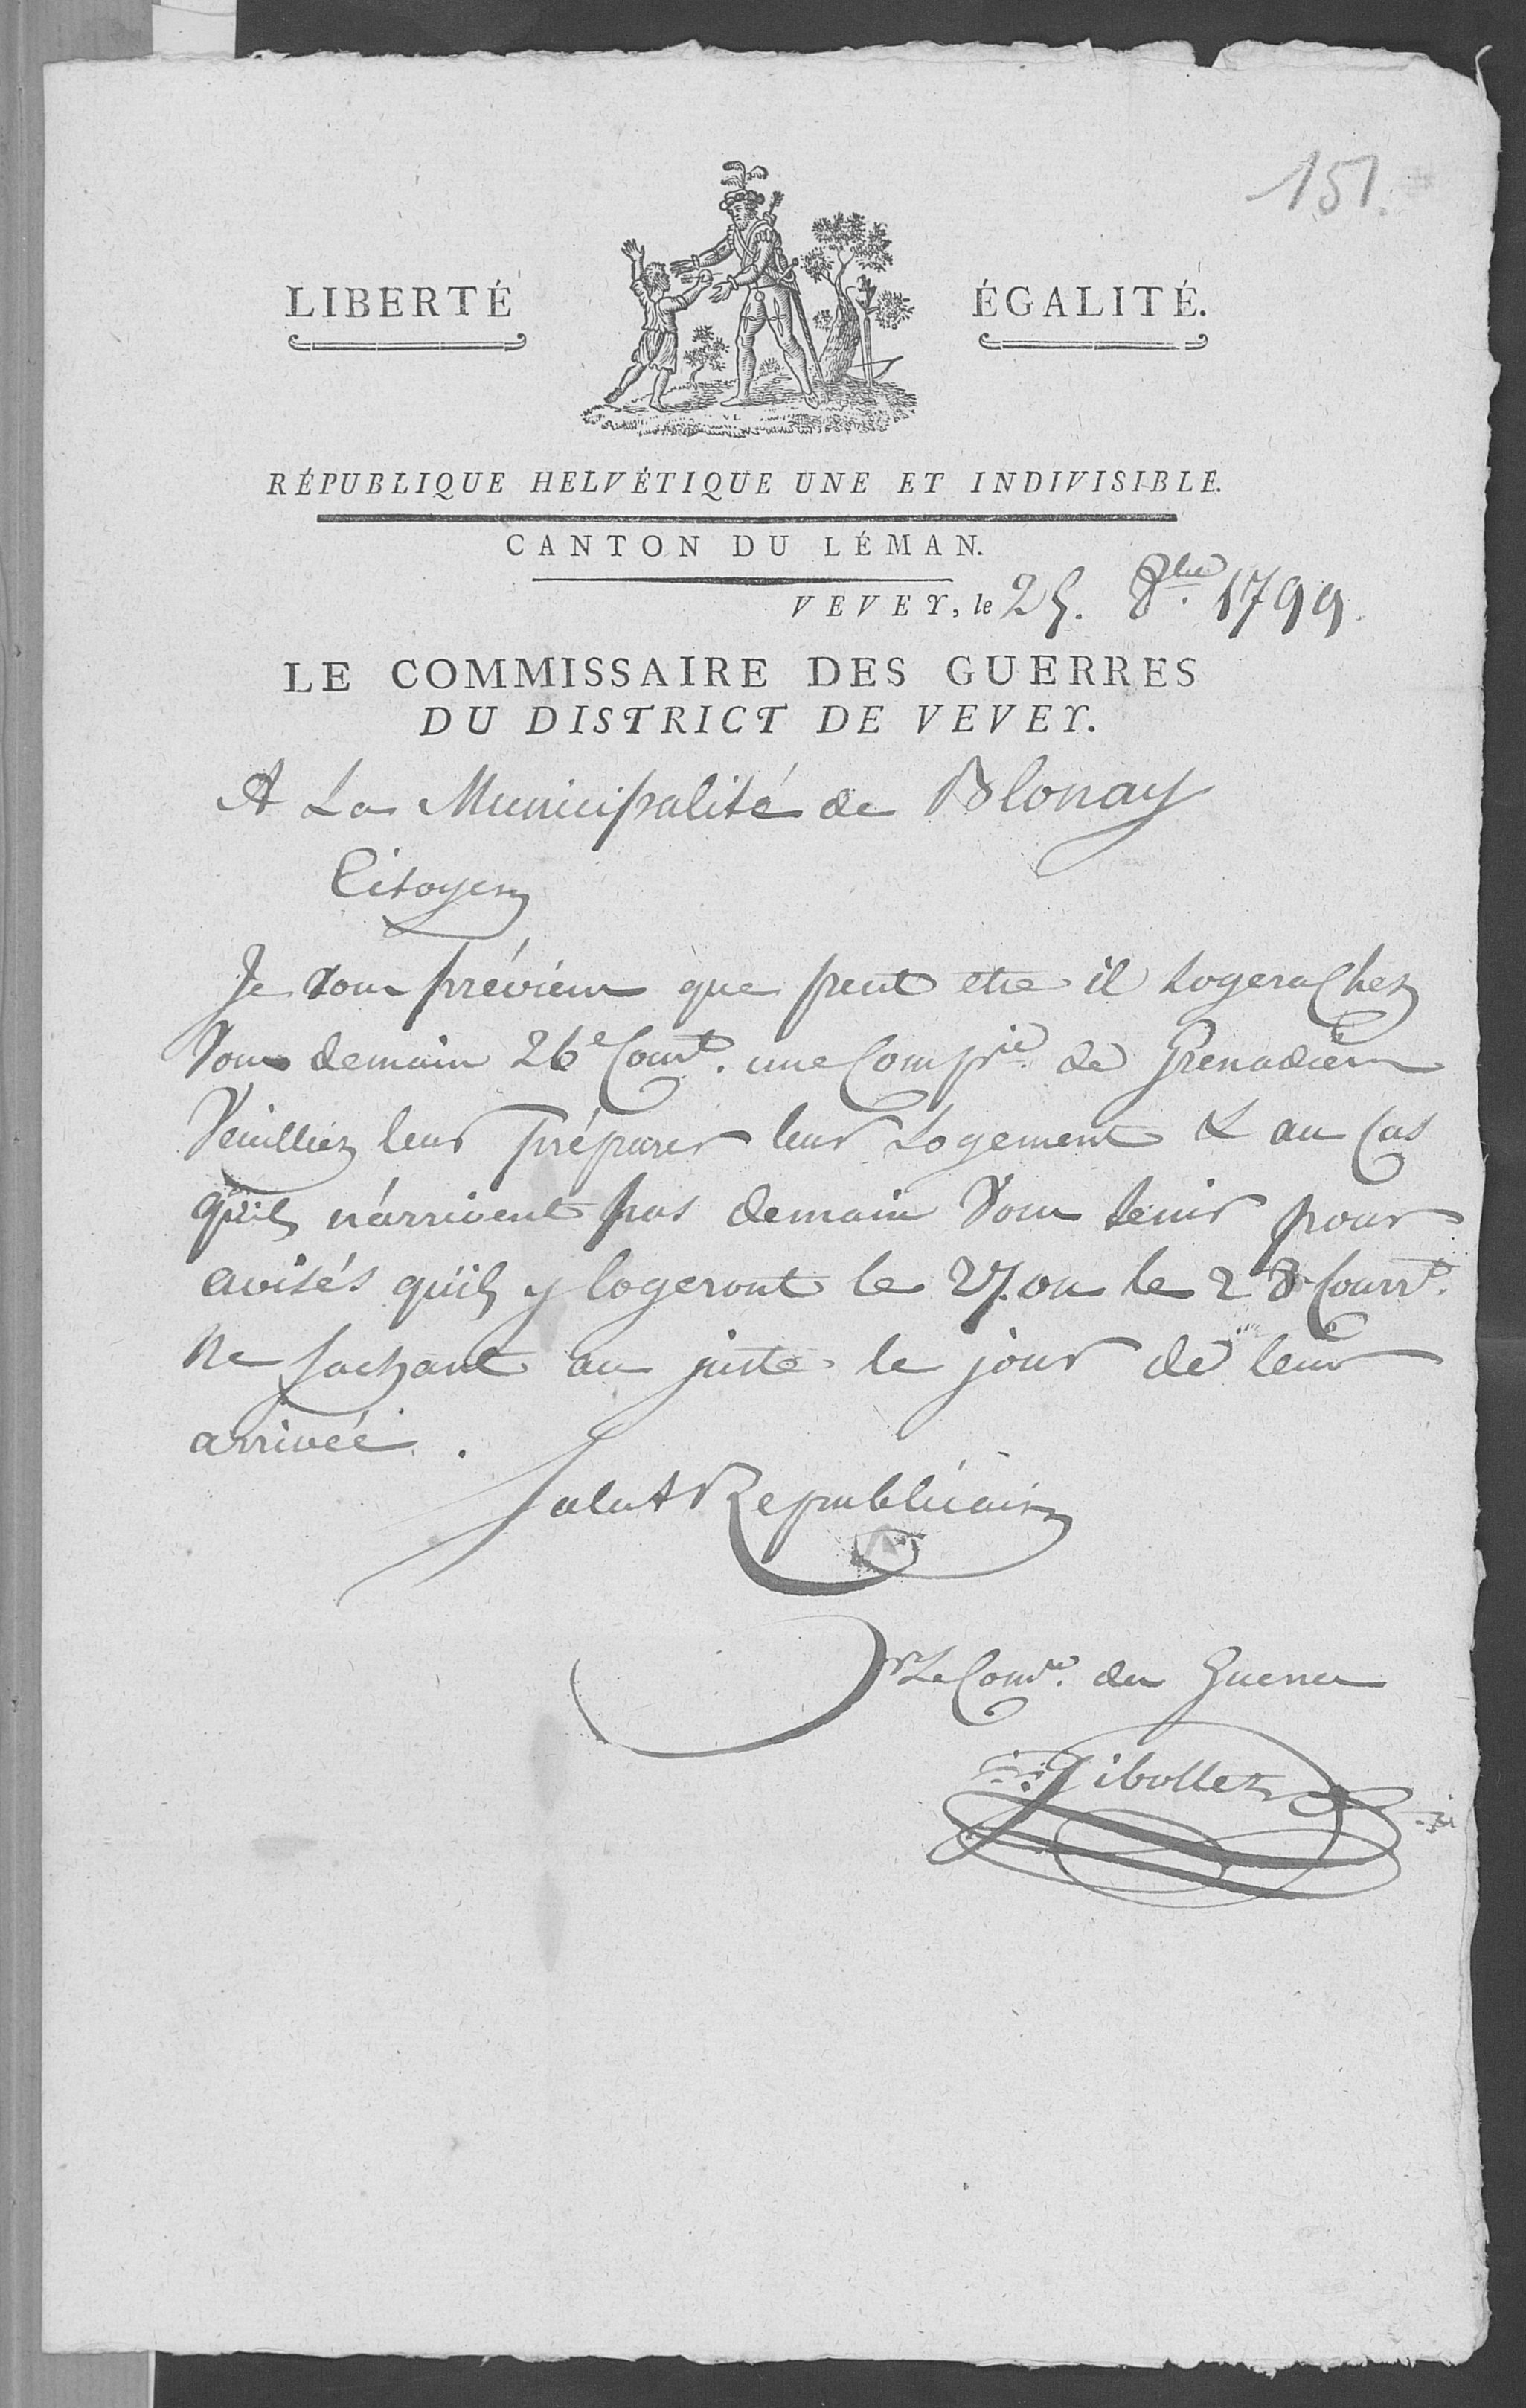 151.
LIBERTÉ ÉGALITÉ.
RÉPUBLIQUE HELVÉTIQUE UNE ET INDIVISIBLE.
CANTON DU LÉMAN.
VEVEY, le 25. 8bre 1799.
LE COMMISSAIRE DES GUERRES
DU DISTRICT DE VEVEY.
A La Municipalité de Blonay
Citoyens
Je vous préviens que peut etre il logera Chez
Vous demain 26e Court. une Compie de Grenadiers
Veuilliez leur préparer leur Logement & au Cas
qu'ils n'arrivent pas demain Vous tenir pour
avisés qu'ils y logeront le 27. ou le 28 Courrt.
Ne sachant au juste le jour de leur
arrivée.
Salut Republicain
Le Comre. des Guerres